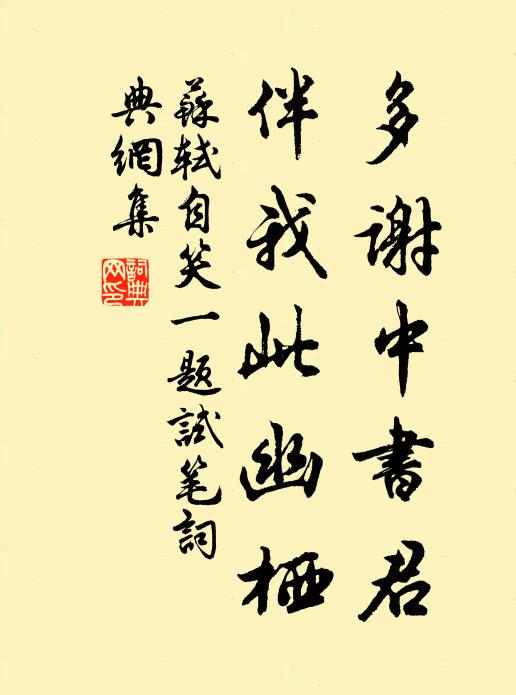 多谢中書君
伴我此幽栖
蘇軾自笑一题試笔詞
典網集
詞典
网印